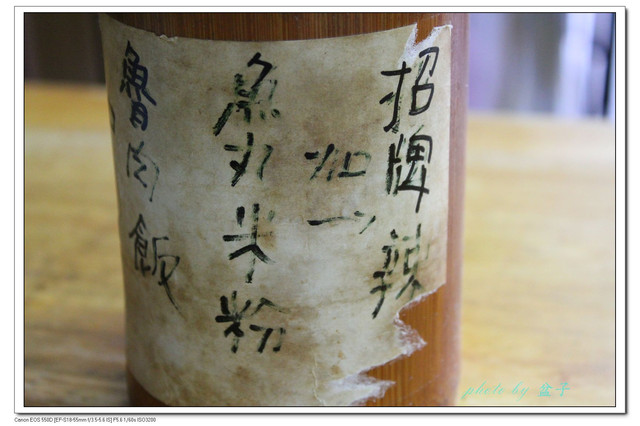 招牌辣
加一
魚丸米粉
魯肉飯
photo by 盆子
Canon EOS 550D [EF-S18-55mm f/3.5-5.6 IS] F5.6 1/60s ISO3200